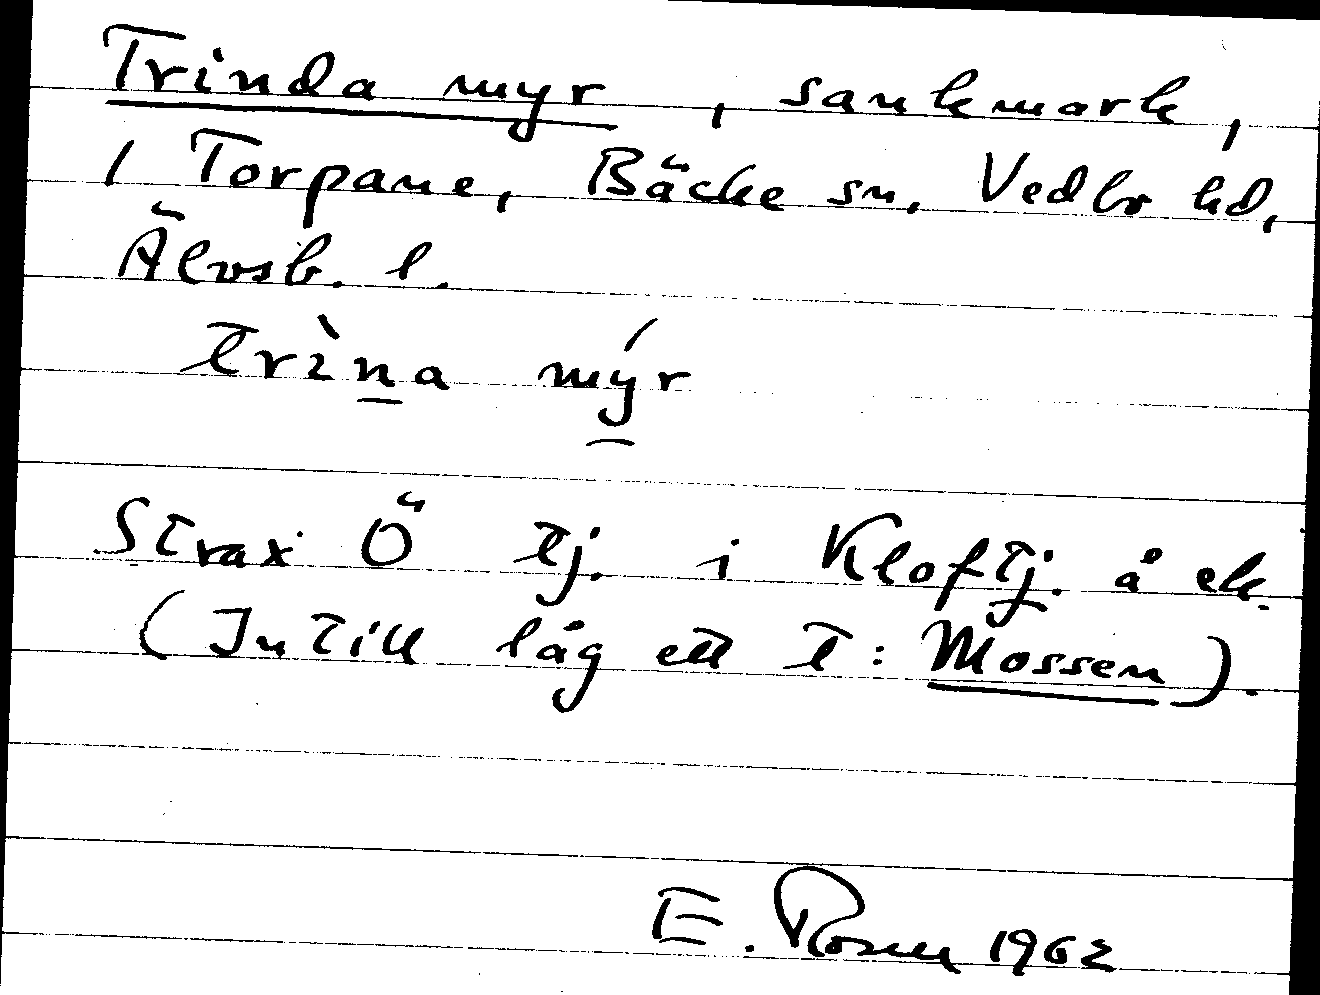 Trinda myr, sankmark,
/ Torpane, Bäcke sn. Vedbo hd,
Älvsb. l.
trìna mýr
Strax Ö tj. i Kloftj. å ek.
(Intill låg ett t: Mossen).
E. Rosell 1962